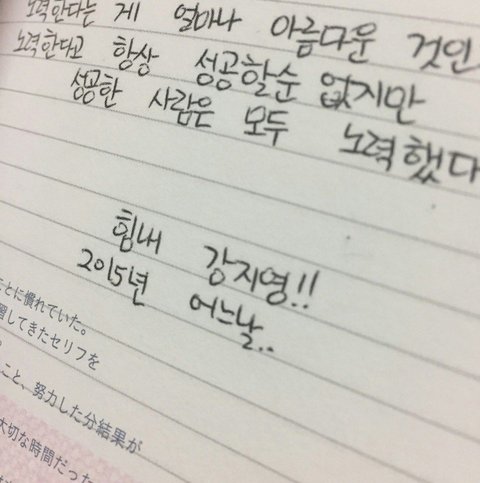 노력한다는 게 얼마나 아름다운 것인
노력한다고 항상 성공할순 없지만
성공한 사람은 모두 노력했다
힘내 강지영!!
2015년 어느날..
ことに慣れていた。
習してきたセリフを
こと、努力した分結果が
大切な時間だった